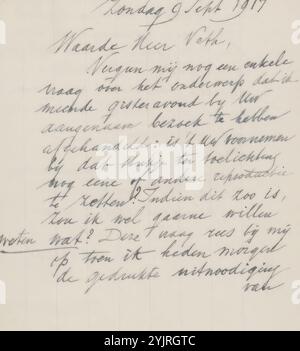 Zondag 9 Sept 1917
Waarde Heer Veth,
Vergun mij nog een enkele
vraag over het onderwerp dat ik
meende gisteravond bij Uw
aangenaam bezoek te hebben
afgehandeld: is 't Uw voornemen
bij dat stukje ter toelichting
nog eene of andere reproductie
te zetten? Indien dit zoo is,
zou ik wel gaarne willen
weten wat? Deze vraag rees bij mij
op toen ik heden morgen
de gedrukte uitnoodiging
van
alamy
Image ID: 2YJRGTC
www.alamy.com